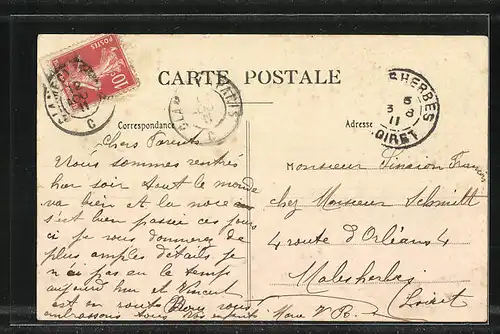 CARTE POSTALE
Correspondance
Adresse
POSTES
10
Chers Parents
Nous sommes rentrés
hier soir tout le monde
va bien et la noce a
s'est bien passée ces jours
ci je vous donnerez de
plus amples détails je
n ai pas eu le temps
aujourd hui et Vincent
est en route Nous vous
embrassons tous Vos enfants
Monsieur
chez Monsieur Schmidt
4 route d'Orléans 4
Malesherbes
Loiret
CLAMECY
C
SHERBES
3 8
11
OIRET